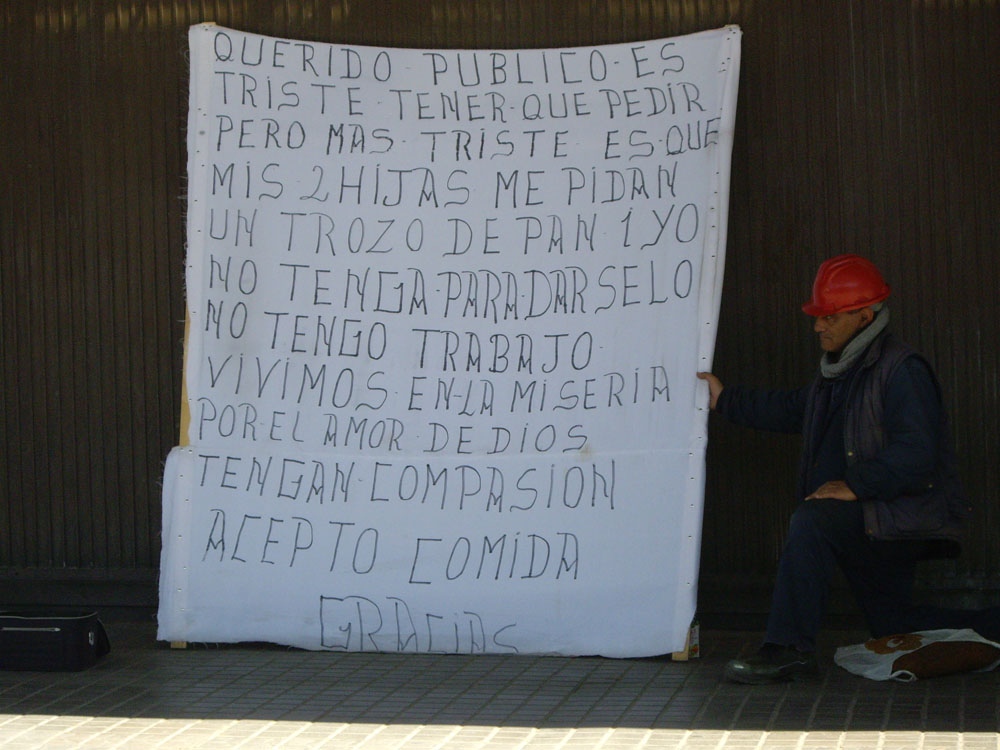 QUERIDO PUBLICO ES
TRISTE TENER QUE PEDIR
PERO MAS TRISTE ES QUE
MIS 2 HIJAS ME PIDAN
UN TROZO DE PAN 1 YO
NO TENGA PARA DARSELO
NO TENGO TRABAJO
VIVIMOS EN LA MISERIA
POR EL AMOR DE DIOS
TENGAN COMPASION
ACEPTO COMIDA
GRACIAS